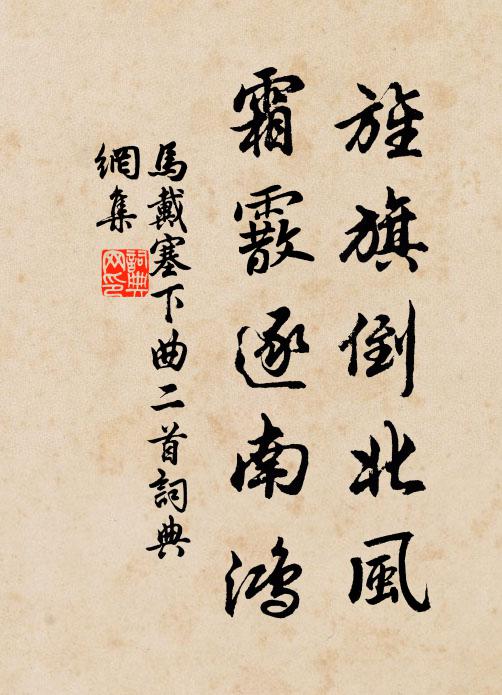 旌旗倒北風
霜霰逐南鴻
馬戴塞下曲二首詞典
網集
詞典
网印